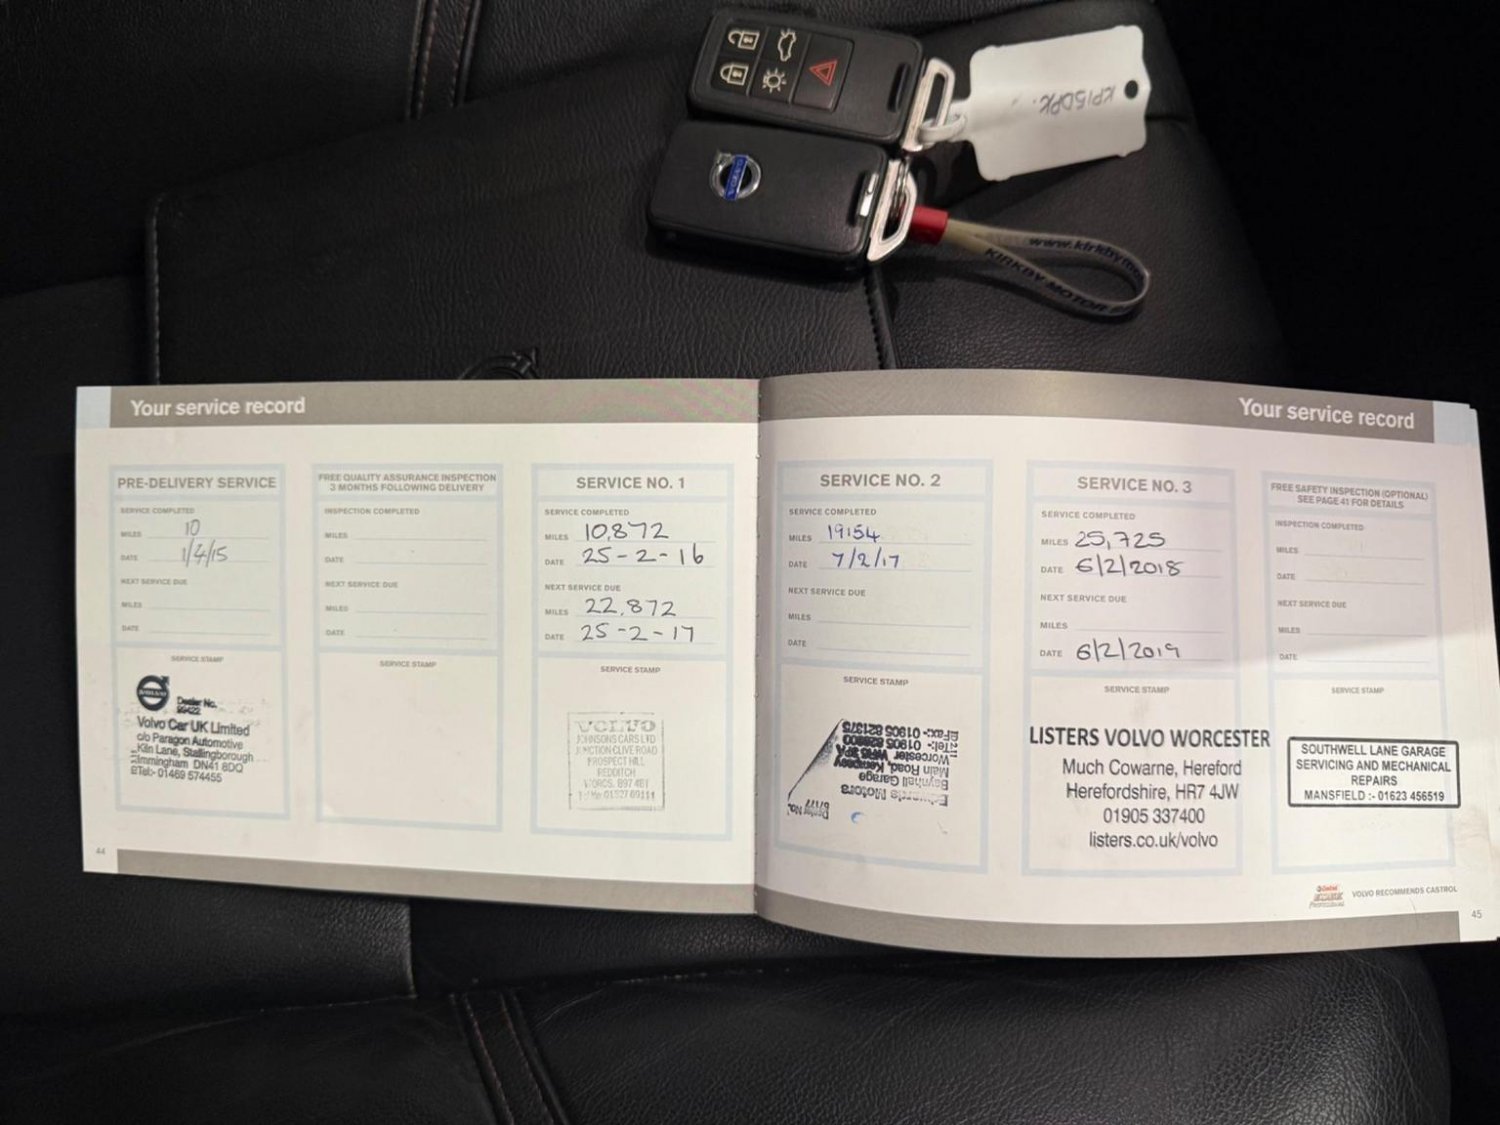 KP15DPK.
VOLVO
www.kirkbym
KIRKBY MOTOR
Your service record
PRE-DELIVERY SERVICE
SERVICE COMPLETED
MILES 10
DATE 1/4/15
NEXT SERVICE DUE
MILES
DATE
SERVICE STAMP
VOLVO
Dealer No.
Volvo Car UK Limited
c/o Paragon Automotive
Kiln Lane, Stallingborough
Immingham DN41 8DQ
Tel:- 01469 574455
FREE QUALITY ASSURANCE INSPECTION
3 MONTHS FOLLOWING DELIVERY
INSPECTION COMPLETED
MILES
DATE
NEXT SERVICE DUE
MILES
DATE
SERVICE STAMP
SERVICE NO. 1
SERVICE COMPLETED
MILES 10,872
DATE 25-2-16
NEXT SERVICE DUE
MILES 22,872
DATE 25-2-17
SERVICE STAMP
VOLVO
JOHNSONS CARS LTD
JUNCTION CLIVE ROAD
PROSPECT HILL
REDDITCH
WORCS. B97 4BT
44
Your service record
SERVICE NO. 2
SERVICE COMPLETED
MILES 19154
DATE 7/2/17
NEXT SERVICE DUE
MILES
DATE
SERVICE STAMP
Dealer No.
Motors
Baynhall Garage
Main Road, Kempsey
Worcester
Tel:- 01905
Fax:- 01905 821375
SERVICE NO. 3
SERVICE COMPLETED
MILES 25,725
DATE 6/2/2018
NEXT SERVICE DUE
MILES
DATE 6/2/2019
SERVICE STAMP
LISTERS VOLVO WORCESTER
Much Cowarne, Hereford
Herefordshire, HR7 4JW
01905 337400
listers.co.uk/volvo
FREE SAFETY INSPECTION (OPTIONAL)
SEE PAGE 41 FOR DETAILS
INSPECTION COMPLETED
MILES
DATE
NEXT SERVICE DUE
MILES
DATE
SERVICE STAMP
SOUTHWELL LANE GARAGE
SERVICING AND MECHANICAL
REPAIRS
MANSFIELD :- 01623 456519
Castrol
EDGE
Professional
VOLVO RECOMMENDS CASTROL
45